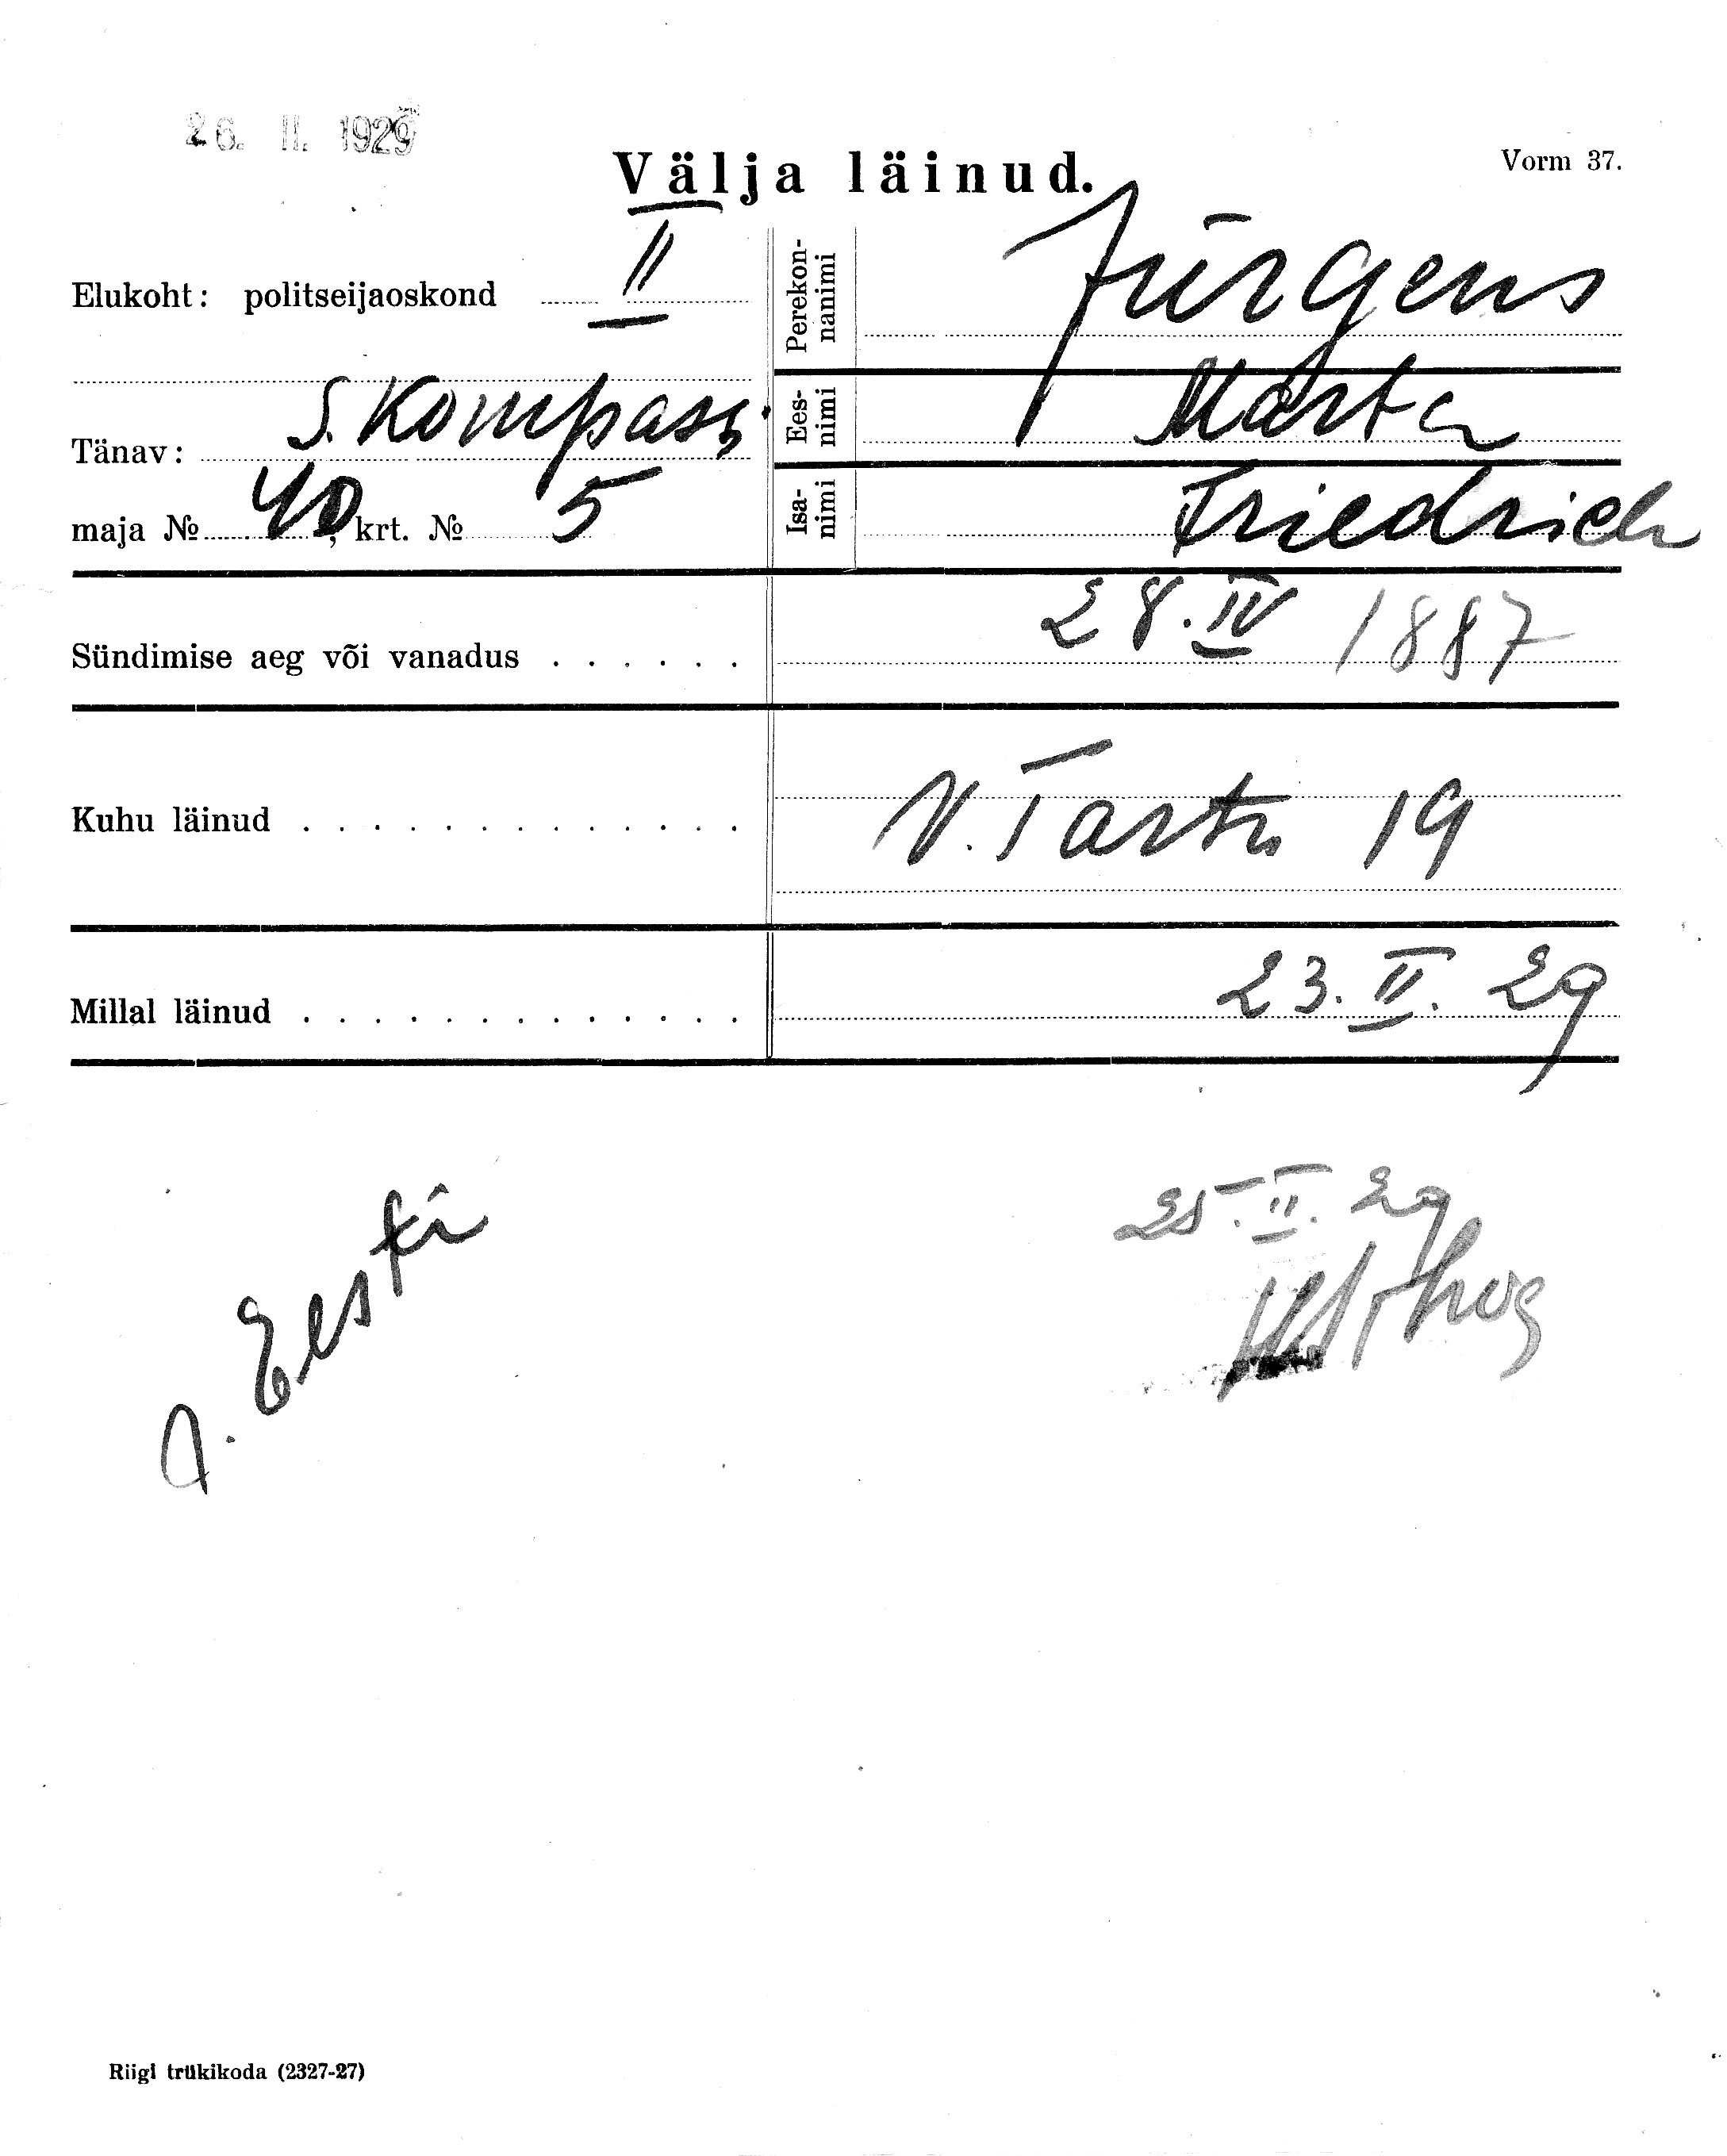 26. II. 1929
Välja läinud.
Vorm 37.
Elukoht: politseijaoskond II
Tänav: S. Kompass
maja № 40, krt. № 5
Perekon-
nanimi Jürgens
Ees-
nimi Marta
Isa-
nimi Friedrich
Sündimise aeg või vanadus . . . . . . 28. IV 1887
Kuhu läinud . . . . . . . . . . . . . V. Tartu 19
Millal läinud . . . . . . . . . . . . . 23. II. 29
Eesti
25. II. 29
Riigi trükikoda (2327-27)